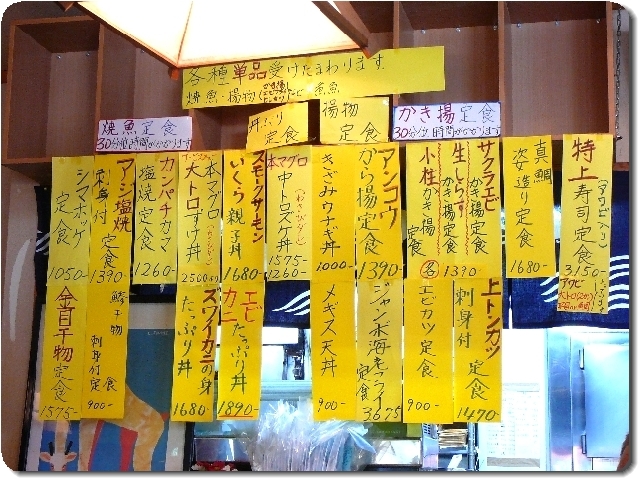 各種単品受けたまわります
焼魚・揚物
丼ぶり
定食
揚物
定食
焼魚定食
30分位時間がかかります
かき揚定食
30分位時間がかかります
特上寿司定食
3150-
アワビ
真鯛
姿造り定食
1680-
サクラエビ
かき揚定食
生しらす
かき揚定食
小柱かき揚定食
各1390-
アンコウ
から揚定食
1390-
きざみウナギ丼
1000-
本マグロ
中トロズケ丼
1575-
1260-
スモークサーモン
いくら親子丼
1680-
本マグロ
大トロずけ丼
2500
カンパチカマ
塩焼定食
1260-
アジ塩焼
刺身付定食
1390-
シマホッケ
定食
1050-
上トンカツ
刺身付定食
1470-
エビカツ定食
900-
ジャンボ海老フライ
定食
3675
メギス天丼
900-
エビ
カニ
たっぷり丼
1890-
スワイカニの身
たっぷり丼
1680-
干物
刺身付定食
900-
金目干物定食
1575-